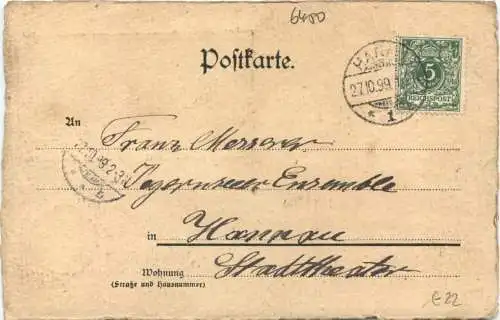 6400
Postkarte.
HANAU
27.10.99.
* 1
5
REICHSPOST
An
Franz Messerer
Tegernseer Ensemble
in Hannau
Wohnung
Stadttheater
(Straße und Hausnummer)
€22